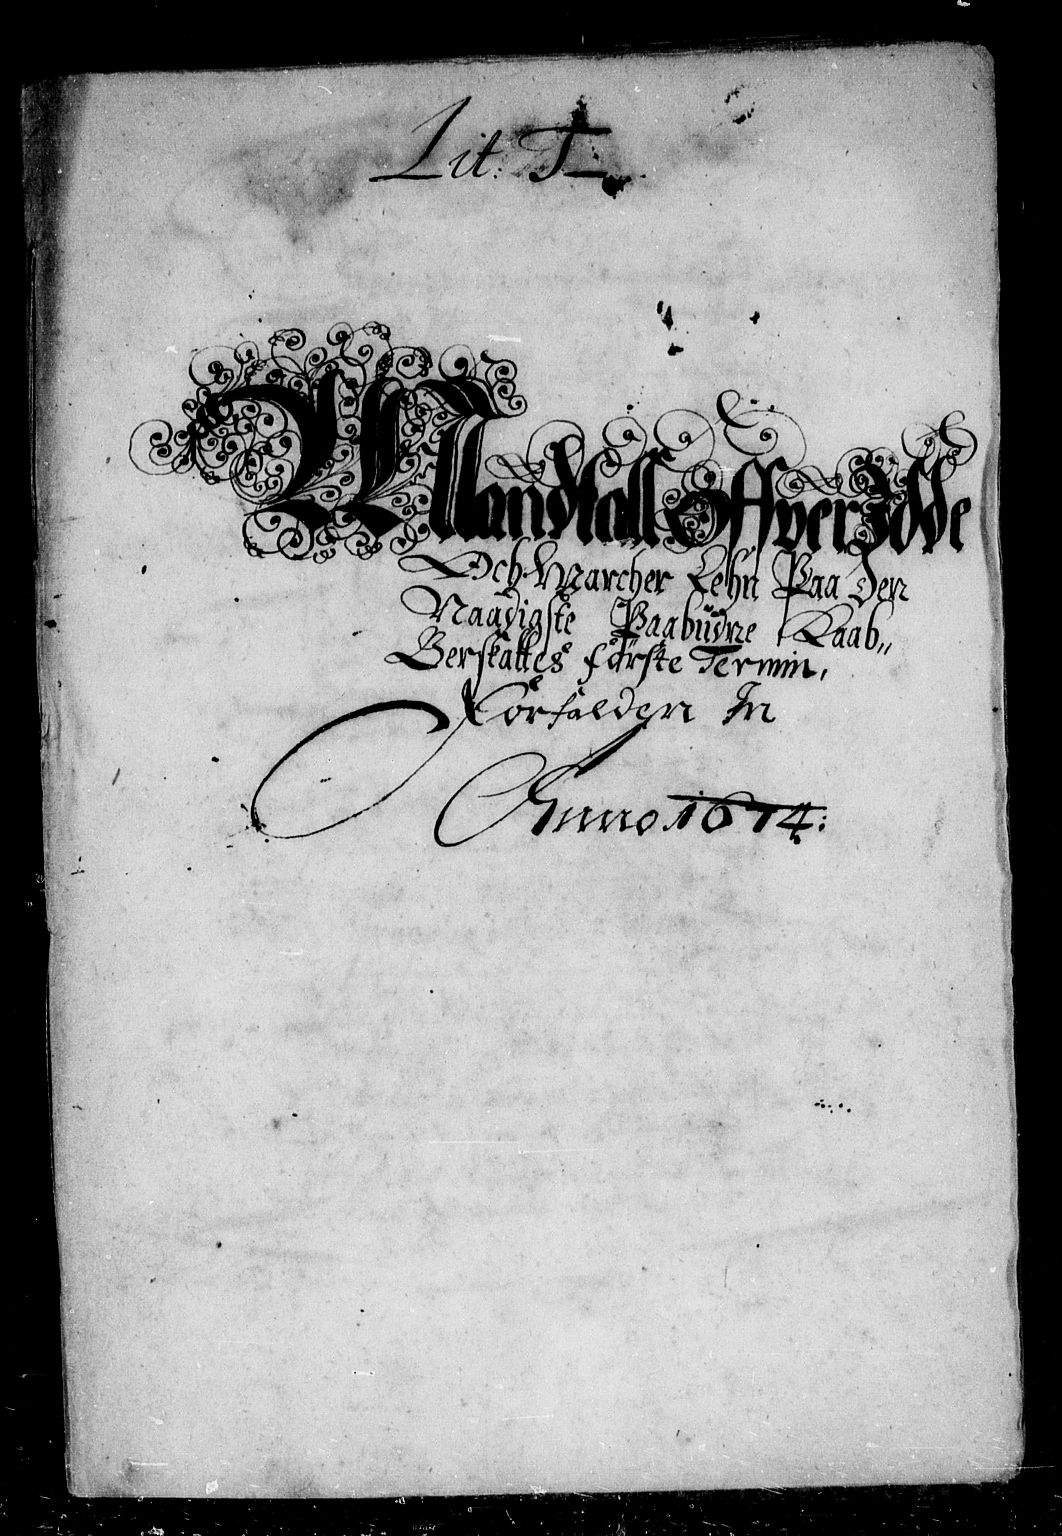 Lit: T
Mandtall Offver Idde
Och Marcher Lehn Paa den
Naadigste Paabudne Kaab„
Berskattes første Termin,
Forfalden In
Anno 1674: